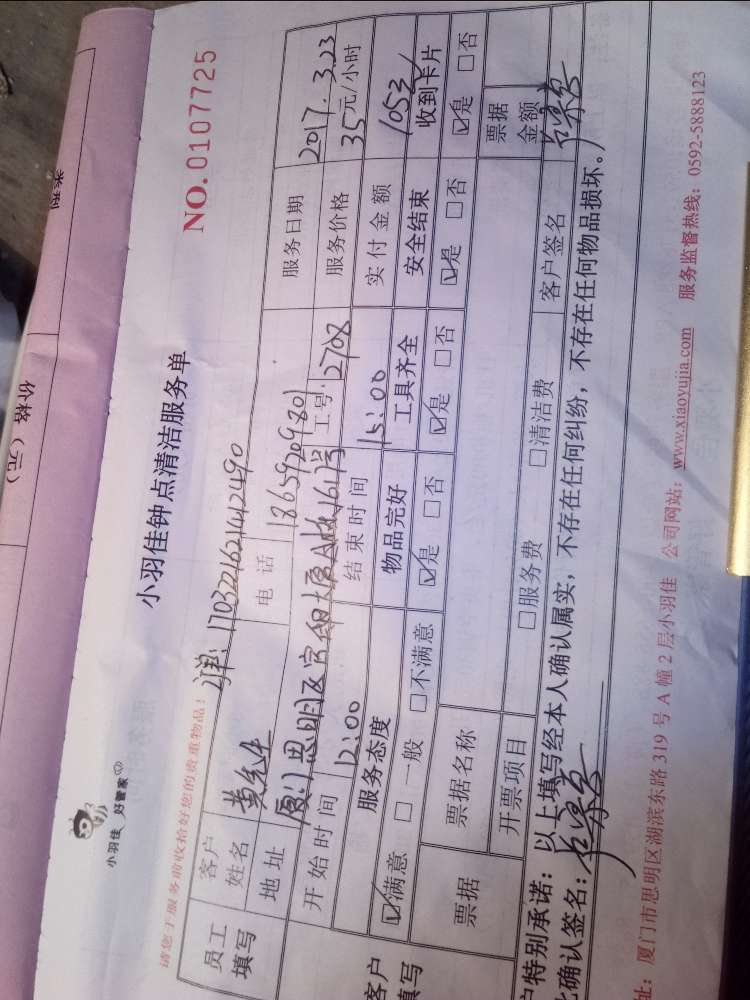 类别
价格（元）
小羽佳 好管家
小羽佳钟点清洁服务单
NO.0107725
请您于服务前收拾好您的贵重物品！
订单：1703221621412490
员工填写
客户姓名 黄先生 电话 18659209801 服务日期 2017.3.23
地址 厦门思明区官邸大厦A栋 工号：2708 服务价格 35元/小时
开始时间 12:00 结束时间 15:00 实付金额 105元
客户填写
服务态度 物品完好 工具齐全 安全结束 收到卡片
☑满意 □一般 □不满意 ☑是 □否 ☑是 □否 ☑是 □否 ☑是 □否
票据 票据名称 票据金额
开票项目 □服务费 □清洁费 客户签名
户特别承诺：以上填写经本人确认属实，不存在任何纠纷，不存在任何物品损坏。
此确认签名：
址：厦门市思明区湖滨东路 319 号 A 幢 2 层小羽佳 公司网站：www.xiaoyujia.com 服务监督热线：0592-5888123